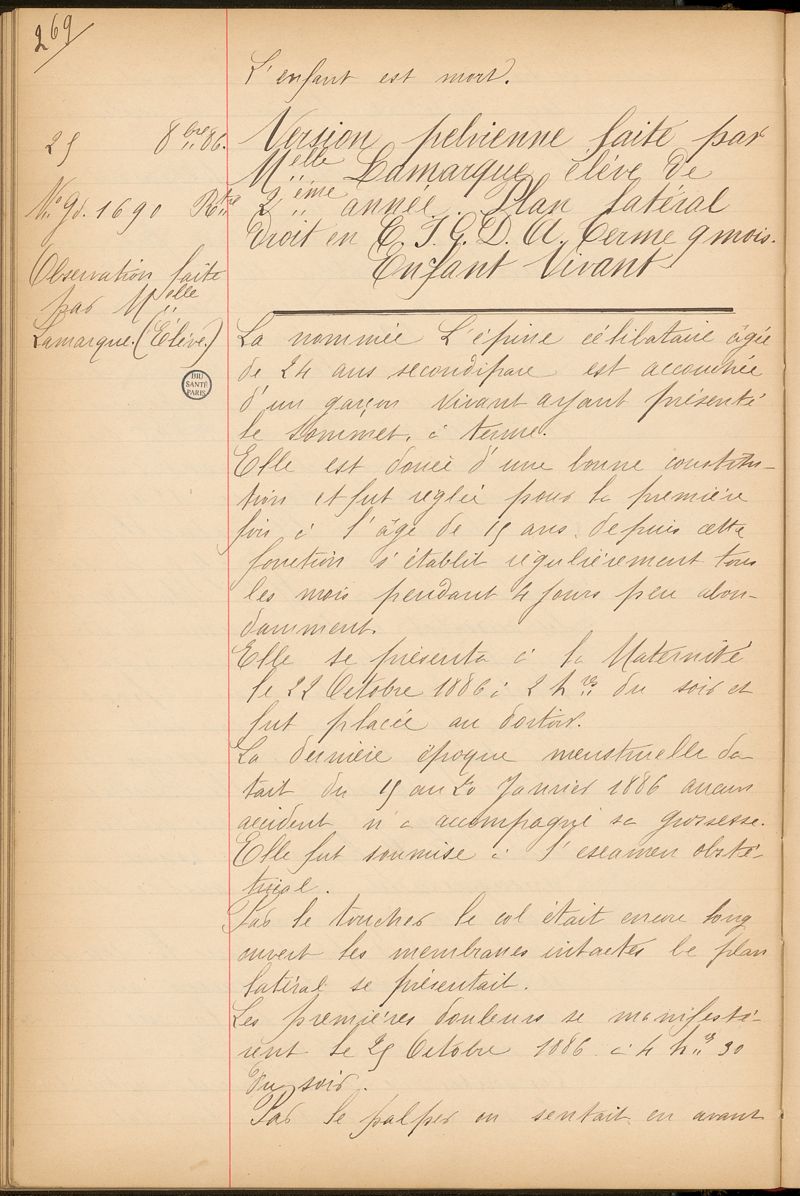 269
L'enfant est mort.
25 8bre 86.
No gd. 1690 Rtre
Observation faite
par Melle
Lamarque. (Élève.)
BIU
SANTÉ
PARIS
Version pelvienne faite par
Melle Lamarque élève de
2ème année. Plan latéral
droit en E. I. G. D. A. Terme 9 mois.
Enfant Vivant
La nommée L'épine célibataire âgée
de 24 ans secondipare est accouchée
d'un garçon vivant ayant présenté
le sommet, à terme.
Elle est douée d'une bonne constitu-
tion et fut réglée pour la première
fois à l'âge de 15 ans. depuis cette
fonction s'établit régulièrement tous
les mois pendant 4 jours peu abon-
damment.
Elle se présenta à la Maternité
le 22 Octobre 1886 à 2 hres du soir et
fut placée au dortoir.
La dernière époque menstruelle da-
tait du 15 au 20 Janvier 1886 aucun
accident n'a accompagné sa grossesse.
Elle fut soumise à l'examen obsté-
trical.
Par le toucher le col était encore long
ouvert les membranes intactes le plan
latéral se présentait.
Les premières douleurs se manifestè-
rent le 25 Octobre 1886 à 4 hs 30
du soir.
Par le palper on sentait en avant